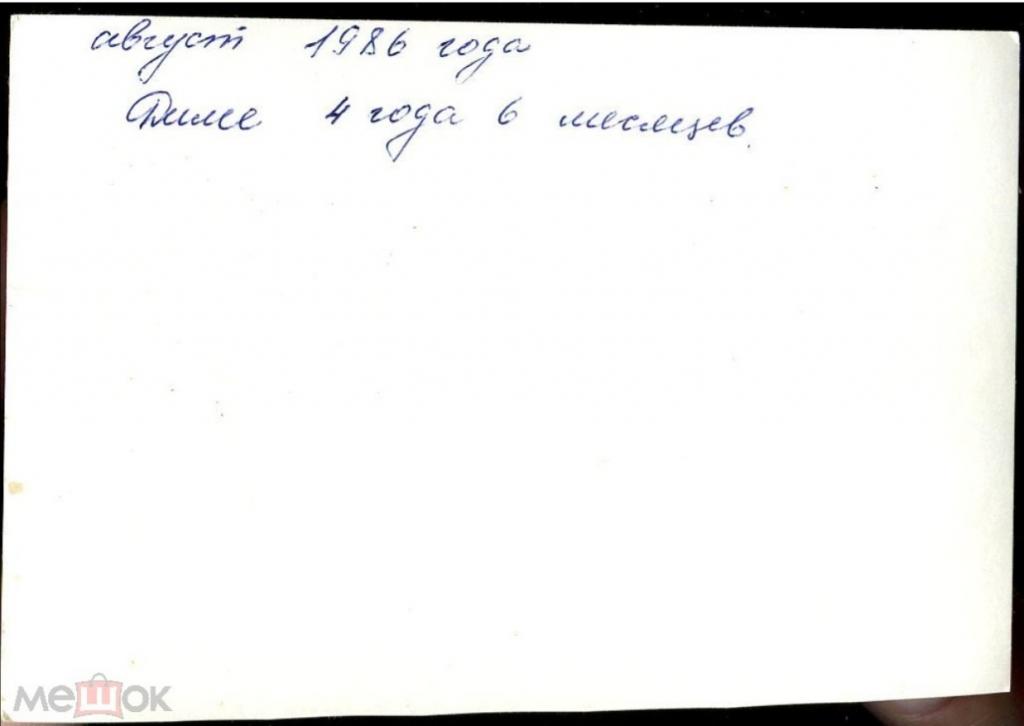 август 1986 года
Диме 4 года 6 месяцев.
мешок